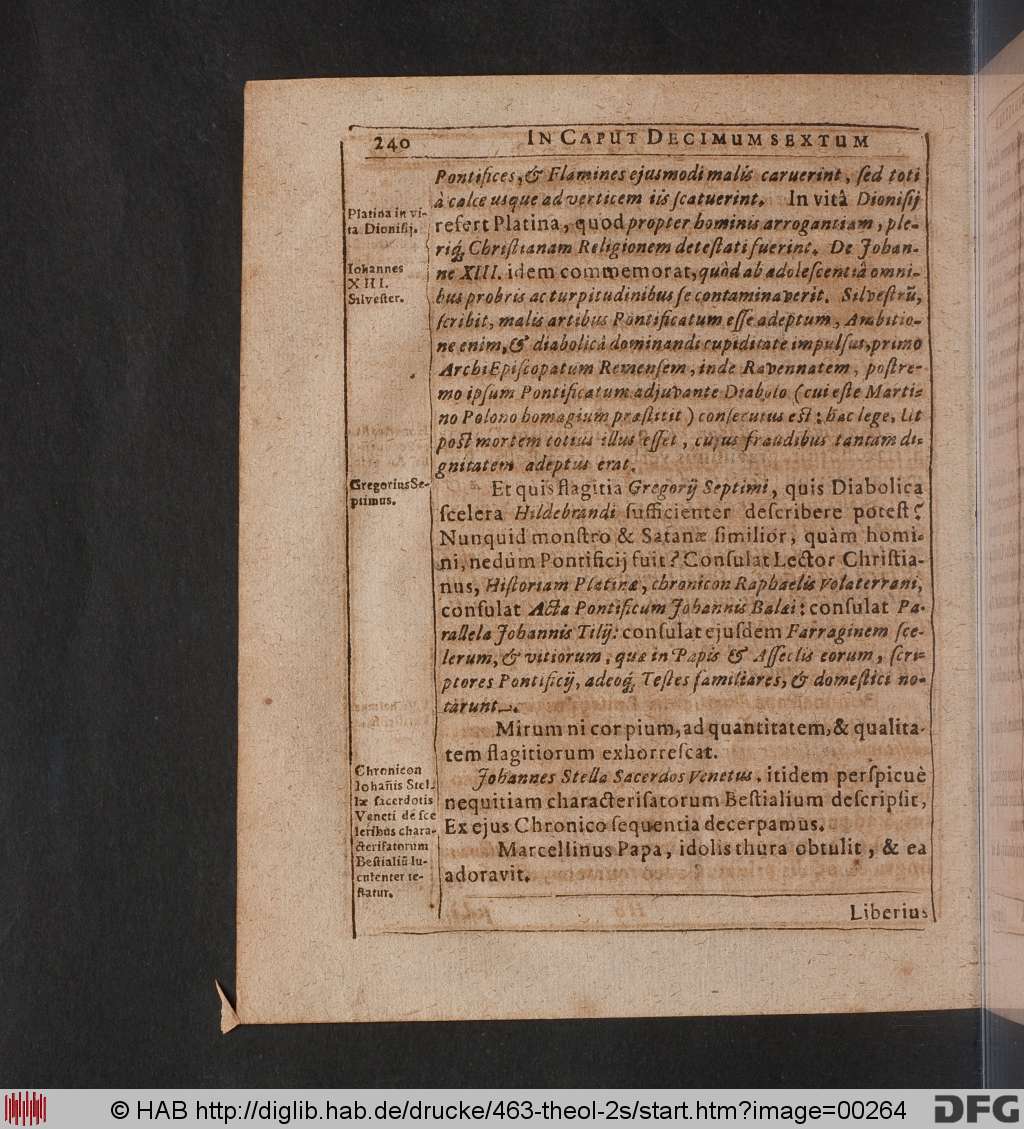 240 IN CAPUT DECIMUM SEXTUM
Pontifices, & Flamines ejusmodi malis caruerint, ſed toti
à calce usque ad verticem iis ſcatuerint. In vitâ Dioniſij
refert Platina, quod propter hominis arrogantiam, ple-
riq́; Chriſtianam Religionem deteſtati fuerint. De Johan-
ne XIII. idem commemorat, quòd ab adoleſcentiâ omni-
bus probris ac turpitudinibus ſe contaminaverit. Silveſtrũ,
ſcribit, malis artibus Pontificatum eſſe adeptum, Ambitio-
ne enim, & diabolicâ dominandi cupiditate impulſus, primo
ArchiEpiſcopatum Remenſem, inde Ravennatem, poſtre-
mo ipſum Pontificatum adjuvante Diabolo (cui eſte Marti-
no Polono homagium præſtitit) conſecutus eſt: hac lege, Ut
poſt mortem totus illius eſſet, cujus fraudibus tantam di-
gnitatem adeptus erat.
Et quis flagitia Gregorij Septimi, quis Diabolica
ſcelera Hildebrandi ſufficienter deſcribere poteſt?
Nunquid monſtro & Satanæ ſimilior, quàm homi-
ni, nedùm Pontificij fuit? Conſulat Lector Chriſtia-
nus, Hiſtoriam Platinæ, chronicon Raphaelis Volaterrani,
conſulat Acta Pontificum Johannis Balæi: conſulat Pa-
rallela Johannis Tilij: conſulat ejuſdem Farraginem ſce-
lerum, & vitiorum, quæ in Papis & Aſſeclis eorum, ſcri-
ptores Pontificij, adeoq́; Teſtes familiares, & domeſtici no-
tarunt.
Mirum ni cor pium, ad quantitatem, & qualita-
tem flagitiorum exhorreſcat.
Johannes Stella Sacerdos Venetus, itidem perſpicuè
nequitiam characteriſatorum Beſtialium deſcripſit,
Ex ejus Chronico ſequentia decerpamus.
Marcellinus Papa, idolis thura obtulit, & ea
adoravit.
Liberius
Platina in vi-
ta Dioniſij.
Iohannes
XIII.
Silveſter.
Gregorius Se-
ptimus.
Chronicon
Iohañis Stel-
læ ſacerdotis
Veneti de ſce
leribus chara-
cteriſatorum
Beſtialiũ lu-
culenter te-
ſtatur.
© HAB http://diglib.hab.de/drucke/463-theol-2s/start.htm?image=00264
DFG